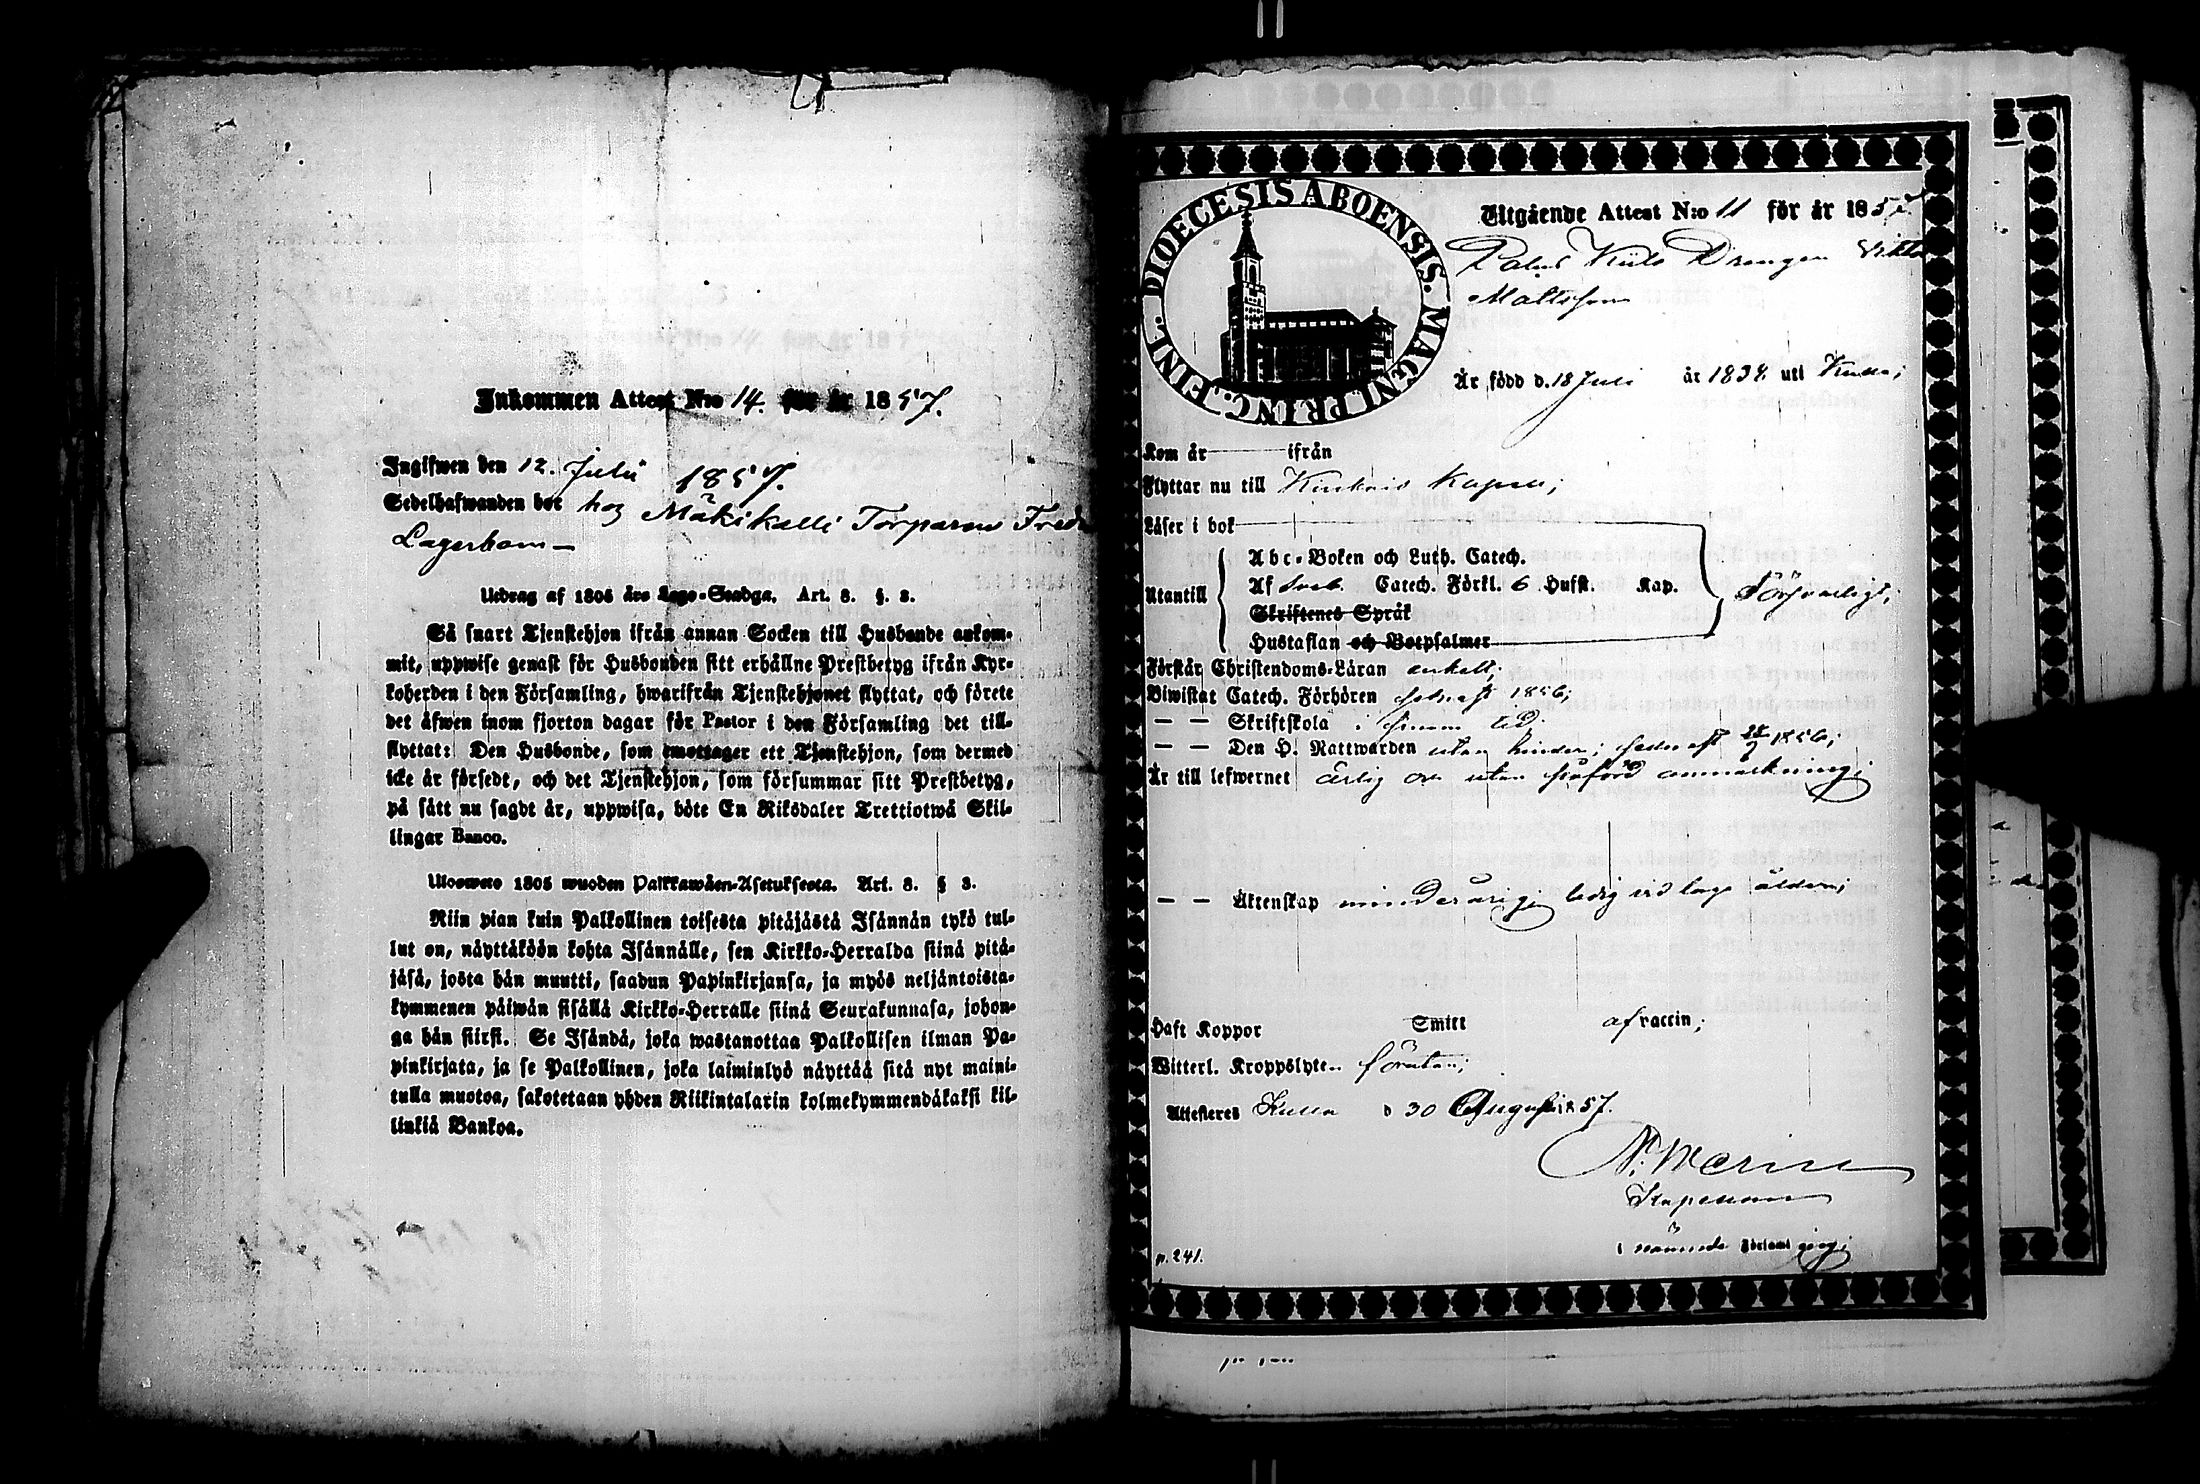 Inkommen Attest N:o 14. för år 1857.
Ingifwen den 12. Julii 1857.
Sedelhafwanden bor hos Mäkikalli Torparns Fredr
Lagerbom
Utdrag af 1805 års Lego-Stadga. Art. 8. §. 3.
Så snart Tjenstehjon ifrån annan Socken till Husbonde ankom-
mit, uppwise genast för Husbonden sitt erhållne Prestbetyg ifrån Kyr-
koherden i den Församling, hwarifrån Tjenstehjonet flyttat, och förete
det äfwen inom fjorton dagar för Pastor i den Församling det till-
flyttat: Den Husbonde, som emottager ett Tjenstehjon, som dermed
icke är försedt, och det Tjenstehjon, som försummar sitt Prestbetyg,
på sätt nu sagdt är, uppwisa, böte En Riksdaler Trettiotwå Skil-
lingar Banco.
Ulosweto 1805 wuoden Palkkawäen-Asetuksesta. Art. 8. § 3.
Niin pian kuin Palkollinen toisesta pitäjästä Isännän tykö tul-
lut on, näyttäköön kohta Isännälle, sen Kirkko-Herralda siinä pitä-
jäsä, josta hän muutti, saadun Papinkirjansa, ja myös neljäntoista-
kymmenen päiwän sisällä Kirkko-Herralle siinä Seurakunnasa, johon-
ga hän siirsi. Se Isändä, joka wastanottaa Palkollisen ilman Pa-
pinkirjata, ja se Palkollinen, joka laiminlyö näyttää sitä nyt maini-
tulla muotoa, sakotetaan yhden Riikintalarin kolmekymmendäkaksi kil-
linkiä Bankoa.
DIOECESIS ABOENSIS. MAGNI PRINC. FINL.
Utgående Attest N:o 11 för år 1857.
Drengen Viktor
Mattsson
Är född d. 18 Juli år 1838 uti Kulla;
Kom år ifrån
Flyttar nu till Kapell;
Läser i bok
Abc-Boken och Luth. Catech.
Utantill Af Sveb. Catech. Förkl. 6 Hufst. Kap. Försvarligt;
Skriftenes Språk
Hustaflan och Botpsalmer
Förstår Christendoms-Läran enkelt;
Biwistat Catech. Förhören sednast 1856;
— — Skriftskola i sinom tid;
— — Den H. Nattwarden utan hinder; sednast 1856;
Är till lefwernet ärlig och utan införd anmärkning;
— — Äktenskap minderårig; ledig vid laga åldern;
Haft Koppor Smitt af vaccin;
Witterl. Kroppslyten förutan;
Attesteres Kulla d 30 Augusti 1857.
Kapellan
i nämnde Församling;
p. 241.